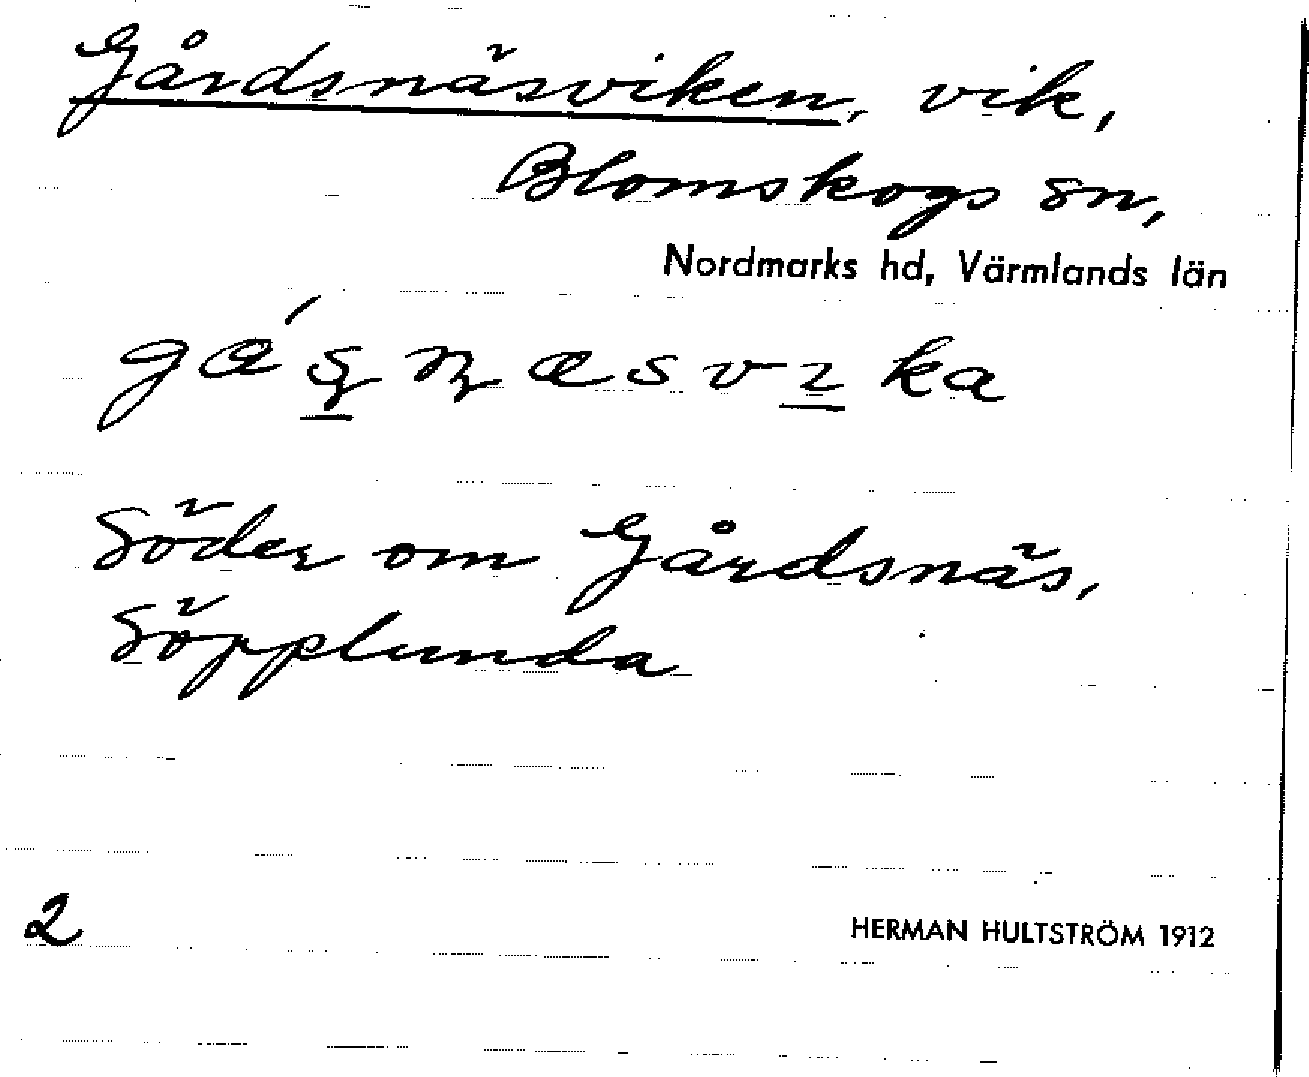 Gårdsnäsviken, vik,
Blomskogs sn,
Nordmarks hd, Värmlands län
Söder om Gårdsnäs,
Söpplunda
2
HERMAN HULTSTRÖM 1912